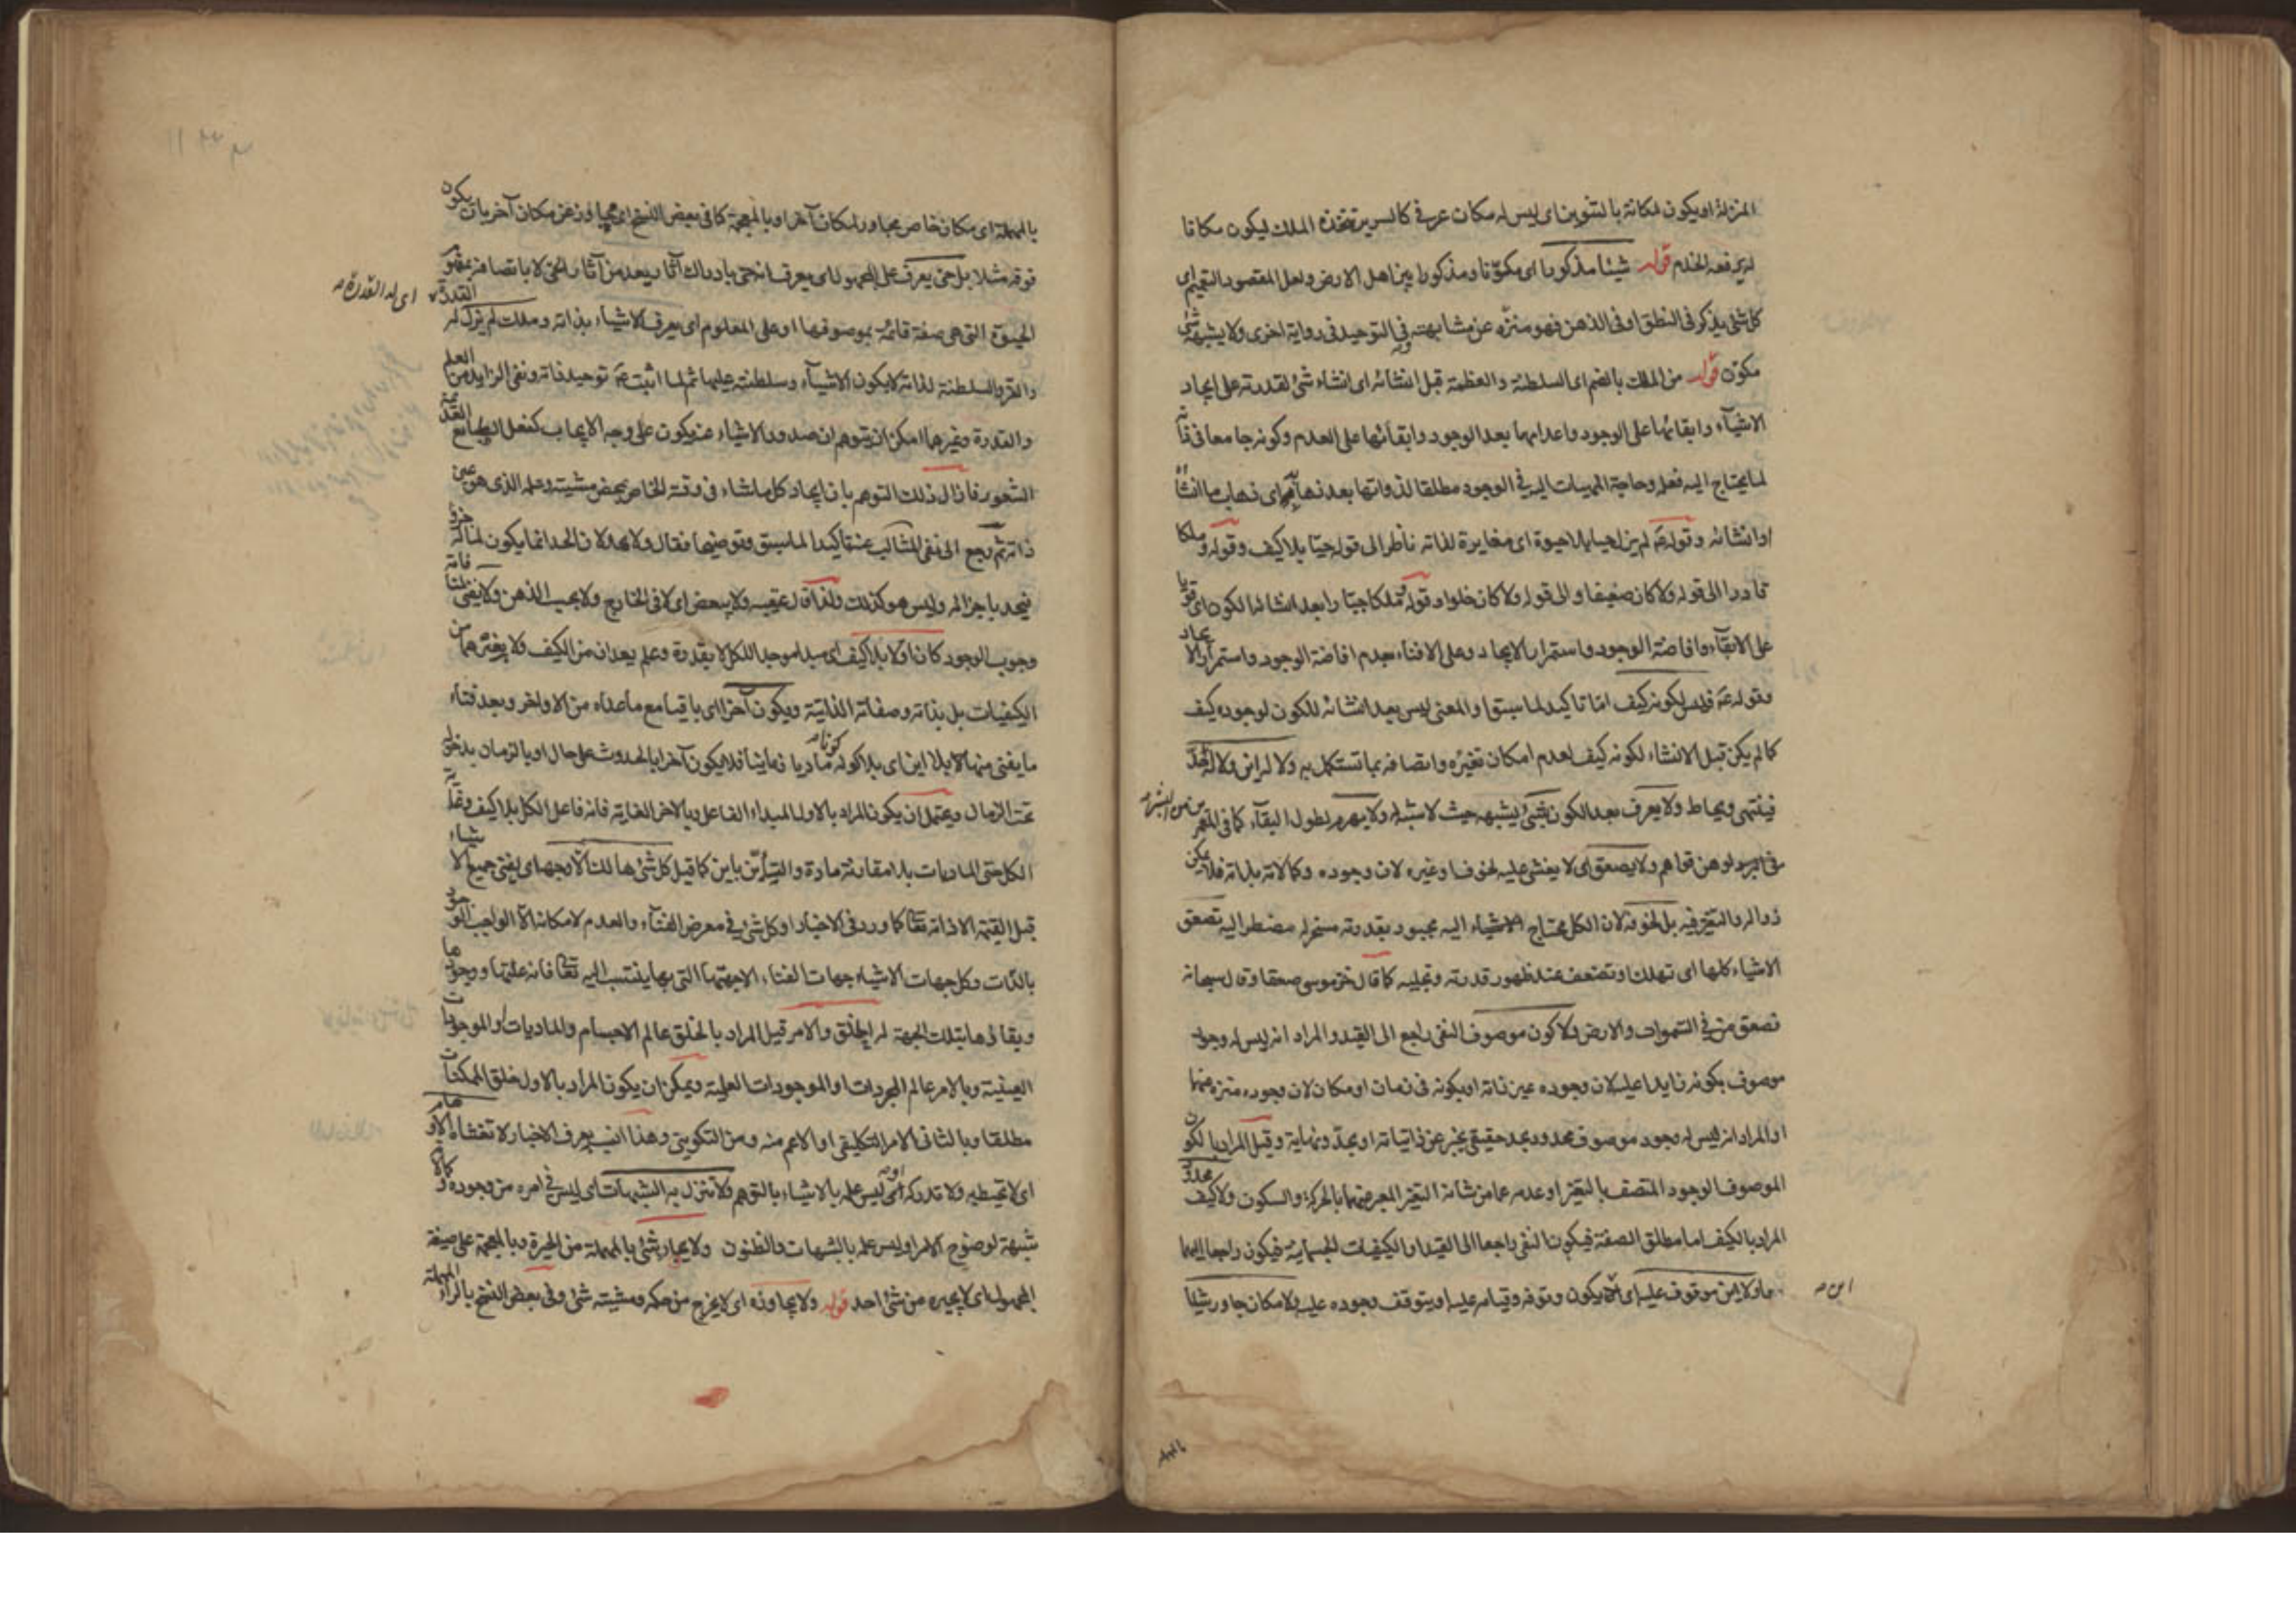 المنزلة او يكون لمكانة بالتنوين اى ليس له مكان عرفى كالسرير تتخذه الملك ليكون مكانا
له يرفعه الخدم قوله شيئا مذكورا اى مكوّنا ومذكورا بين اهل الارض ولعل المقصود التعميم اى
كل شئ يذكر فى النطق او فى الذهن فهو منزّه عن مشابهته وفى التوحيد فى رواية اخرى ولا يشبهه شئ
مكوّن قوله من الملك بالضم اى السلطنة والعظمة قبل انشائه اى انشاء شئ لقدرته على ايجاد
الاشيآء وابقائها على الوجود واعدامها بعد الوجود وابقائها على العدم وكونه جامعا فى ذاته
لما يحتاج اليه فعله وحاجة المهيات اليه فى الوجود مطلقا لذواتها بعد ذهابه اى ذهاب ما انشأه
او انشائه وقوله عه لم يزل حيا بلا حيوة اى مغايرة لذاته ناظر الى قوله حيّا بلا كيف وقوله وملكا
قادرا الى قوله ولا كان ضعيفا والى قوله ولا كان خلوا وقوله ملكا جبّارا بعد انشائه الكون اى قويا
على الابقآء وافاضة الوجود واستمرار الايجاد وعلى الافناء بعدم افاضة الوجود واستمرار الايجاد
وقوله عه فليس لكونه كيف امّا تاكيد لما سبق او المعنى ليس بعد انشائه للكون لوجوده كيف
كما لم يكن قبل الانشاء لكونه كيف لعدم امكان تغيّره واتصافه بما تستكمل به ولا له اين ولا له حدّ
فينتهى ويحاط ولا يعرف بعد الكون بشئ يشبهه حيث لا شبه له ولا يهرم لطول البقآء كما فى المعمر
ين من البشر صح
فى لوهن قواهم ولا يصعق اى لا يغشى عليه لخوف او غيره لان وجوده وكمالاته بذاته فلا يمكن
زواله والتغيّر فيه بل لخوفه لان الكل محتاج اليه مجبور بقدرته مسخر له مضطر اليه تصعق
الاشياء كلها اى تهلك او تضعف عند ظهور قدرته وتجليه كما قال خر موسى صعقا وقال سبحانه
فصعق من فى السموات والارض ولا كون موصوف النفى راجع الى القيد والمراد انه ليس له وجود
موصوف بكونه زايدا عليه لان وجوده عين ذاته او بكونه فى زمان او مكان لان وجوده منزه عنهما
او المراد انه ليس له وجود موصوف محدود بحد حقيقى يخبر عن ذاتياته او بحدّ ونهاية وقيل المراد بالكون
الموصوف الوجود المتصف بالتغيّر او عدمه عما من شانه التغيّر المعبر عنهما بالحركة والسكون ولا كيف محدود
المراد بالكيف اما مطلق الصفة فيكون النفى راجعا الى القيد او الكيفيات الجسمانية فيكون راجعا اليهما
ولا اين موقوف عليه اى لا يكون وقوفه وقيامه عليه او يتوقف وجوده عليه ولا مكان جاور شيئا
اين صح
بالمهملة
بالمهملة اى مكان خاص مجاور لمكان آخر او بالمعجمة كما فى بعض النسخ اى مجاوز عن مكان آخر بان يكون
فوقه مثلا بل حىّ يعرف على المجهول اى يعرف انه حىّ بادراك آثار يعد من آثار الحىّ لا باتصافه بمفهوم
الحيوة التى هى صفة قائمة بموصوفها او على المعلوم اى يعرف الاشياء بذاته وملك لم يزل له القدرة
اى له القدرة صح
والعز والسلطنة لذاته لا بكون الاشيآء وسلطنته عليها ثم لما اثبت عه توحيد ذاته ونفى الزايد من العلم
والقدرة وغيرهما امكن ان يتوهم ان صدور الاشياء عنه يكون على وجه الايجاب كفعل الطبايع العديمة
الشعور فازال ذلك التوهم بان ايجاد كل ما شاء فى وقته الخاص بمحض مشيته وعلمه الذى هو عين
ذاته ثم رجع الى نفى المثالب عنه تاكيدا لما سبق وتوضيحا فقال ولا يحد لان الحد انما يكون لما له جزء
فيحد باجزائه وليس هو كذلك ولذا قال عقيبه ولا يبعض اى لا فى الخارج ولا بحسب الذهن ولا يفنى لمنافاته
وجوب الوجود كان اولا بلا كيف اى مبدا موجدا للكل لا بقدرة وعلم يعدان من الكيف ولا بغيرهما من
الكيفيات بل بذاته وصفاته الذاتية ويكون آخرا اى باقيا مع ما عداه من الاواخر وبعد فناء
ما يفنى منها بلا اين اى بلا كونه ماديا زمانيا فلا يكون آخرا بالحدوث على حال او بالزمان بدخوله
تحت الزمان ويحتمل ان يكون المراد بالاول المبداء الفاعلى وبالاخر الغاية فانه فاعل الكل بلا كيف وغاية
الكل حتى الماديات بلا مقارنة مادة والتأيّن باين كما قيل كل شئ هالك الا وجهه اى يفنى جميع الاشياء
قبل القيمة الا ذاته تعا كما ورد فى الاخبار او كل شئ فى معرض الفنآء والعدم لامكانه الا الواجب الوجود
بالذات وكل جهات الاشياء جهات الفناء الا جهتها التى بها ينتسب اليه تعا فانه علتها ووجودها
وبقائها بتلك الجهة له الخلق والامر قيل المراد بالخلق عالم الاجسام والماديات او الموجودات
العينية وبالامر عالم المجردات او الموجودات العلمية ويمكن ان يكون المراد بالاول خلق الممكنات
مطلقا وبالثانى الامر التكليفى او الاعم منه ومن التكوينى وهذا انسب بعرف الاخبار لا تغشاه الاوهام
اى لا تحيط به ولا تدركه او ليس علمه بالاشياء بالتوهم ولا تنزل به الشبهات اى ليس فى امره من وجوده وكماله
شبهة لوضوح الامر او ليس علمه بالشبهات والظنون ولا يحار بشئ بالمهملة من الحيرة وبالمعجمة على صيغة
المجهول اى لا يجيره من شئ احد قوله ولا يجاوزه اى لا يخرج من حكمه ومشيته شئ وفى بعض النسخ بالراء المهملة